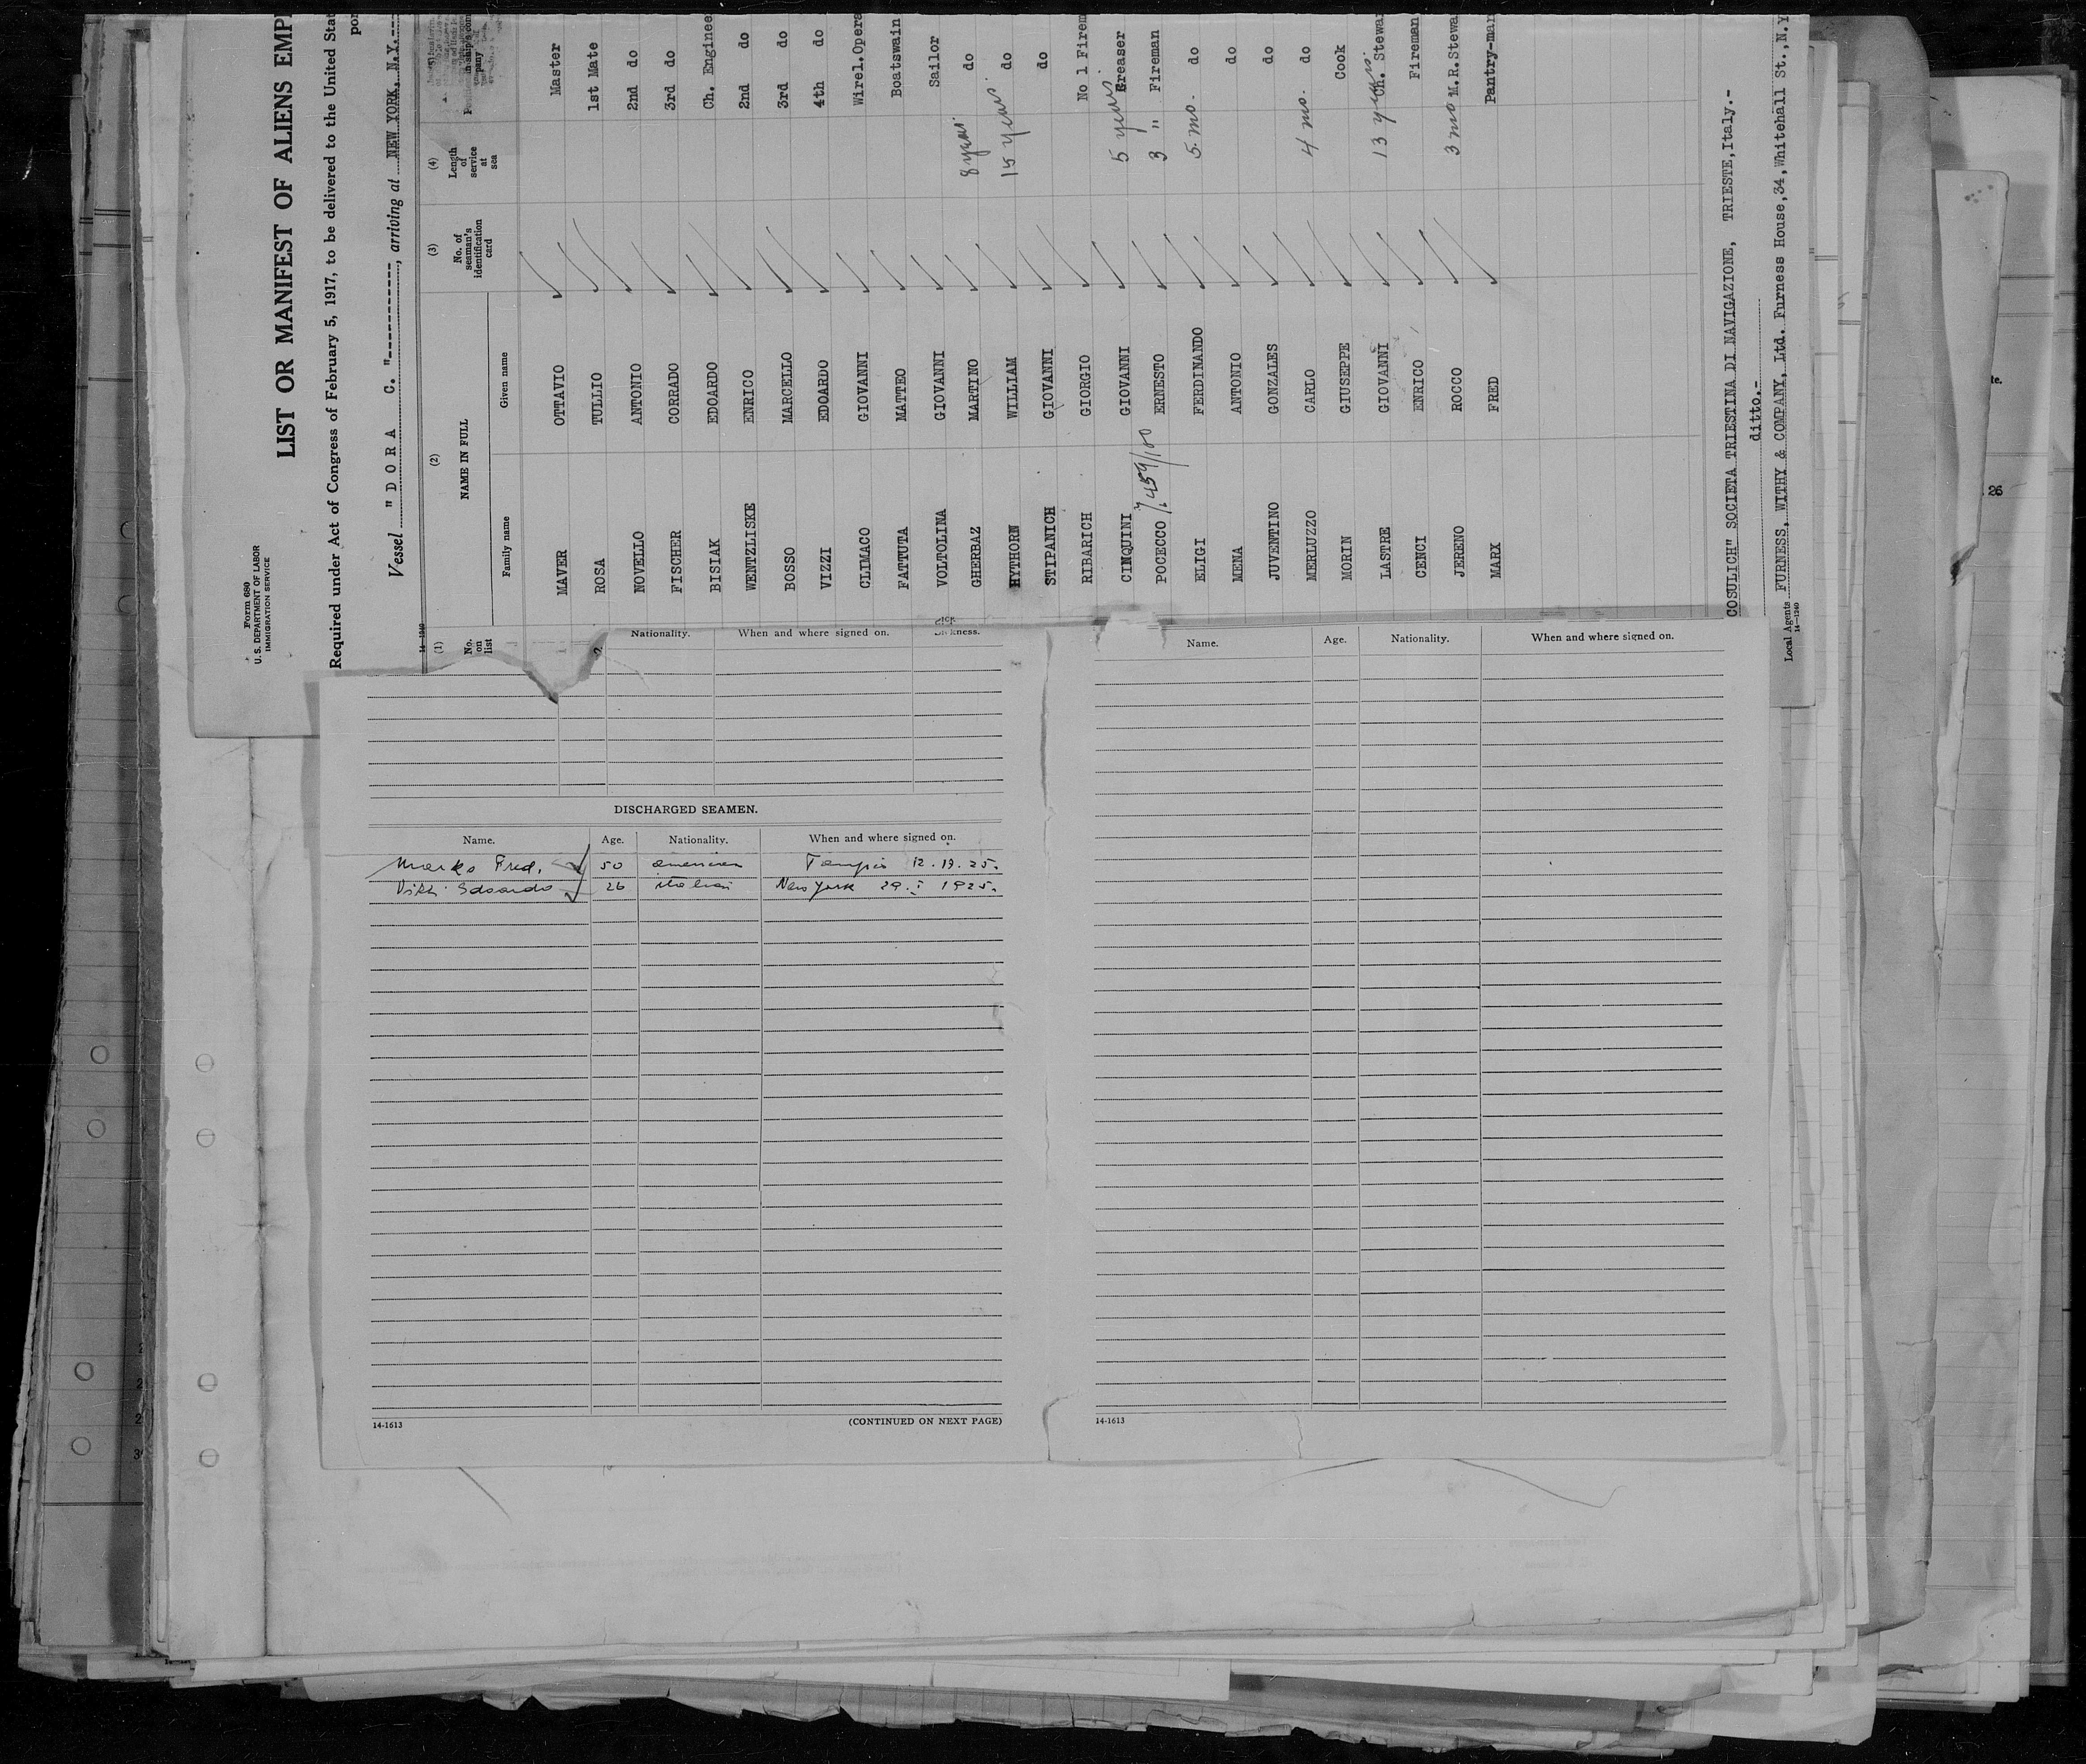 Form 680
U.S. DEPARTMENT OF LABOR
IMMIGRATION SERVICE
LIST OR MANIFEST OF ALIENS EMP
Required under Act of Congress of February 5, 1917, to be delivered to the United Stat
por
Vessel "DORA C."-----------, arriving at NEW YORK. N.Y.---
14-1240
(1) (2) (3) (4)
No. on list
NAME IN FULL
Family name Given name
No. of seaman's identification card
Length of service at sea
MAVER OTTAVIO Master
2 ROSA TULLIO 1st Mate
NOVELLO ANTONIO 2nd do
FISCHER CORRADO 3rd do
BISIAK EDOARDO Ch. Enginee
WENTZLISKE ENRICO 2nd do
BOSSO MARCELLO 3rd do
VIZZI EDOARDO 4th do
CLIMACO GIOVANNI Wirel.Opera
FATTUTA MATTEO Boatswain
VOLTOLINA GIOVANNI Sailor
GHERBAZ MARTINO 8 years do
HYTHORN WILLIAM 15 years do
STIPANICH GIOVANNI do
RIBARICH GIORGIO No 1 Firem
CINQUINI GIOVANNI 5 years Greaser
POCECCO 7.459/100 ERNESTO 3 " Fireman
ELIGI FERDINANDO 5 mo. do
MENA ANTONIO do
JUVENTINO GONZALES do
MERLUZZO CARLO 4 mo. do
MORIN GIUSEPPE Cook
LASTRE GIOVANNI 13 years Ch. Stewar
CENCI ENRICO Fireman
JERENO ROCCO 3 mo M.R.Stewa
MARX FRED Pantry-man
COSULICH" SOCIETA TRIESTINA DI NAVIGAZIONE, TRIESTE,Italy.-
ditto.-
Local Agents FURNESS, WITHY & COMPANY, Ltd. Furness House,34,Whitehall St.,N.Y
14-1240
Nationality. When and where signed on. Sickness.
DISCHARGED SEAMEN.
Name. Age. Nationality. When and where signed on.
Marks Fred. 50 american Tampico 12.19.25.
Vizzi Edoardo 26 italian New York 29.I 1925.
14-1613 (CONTINUED ON NEXT PAGE)
Name. Age. Nationality. When and where signed on.
14-1613
26